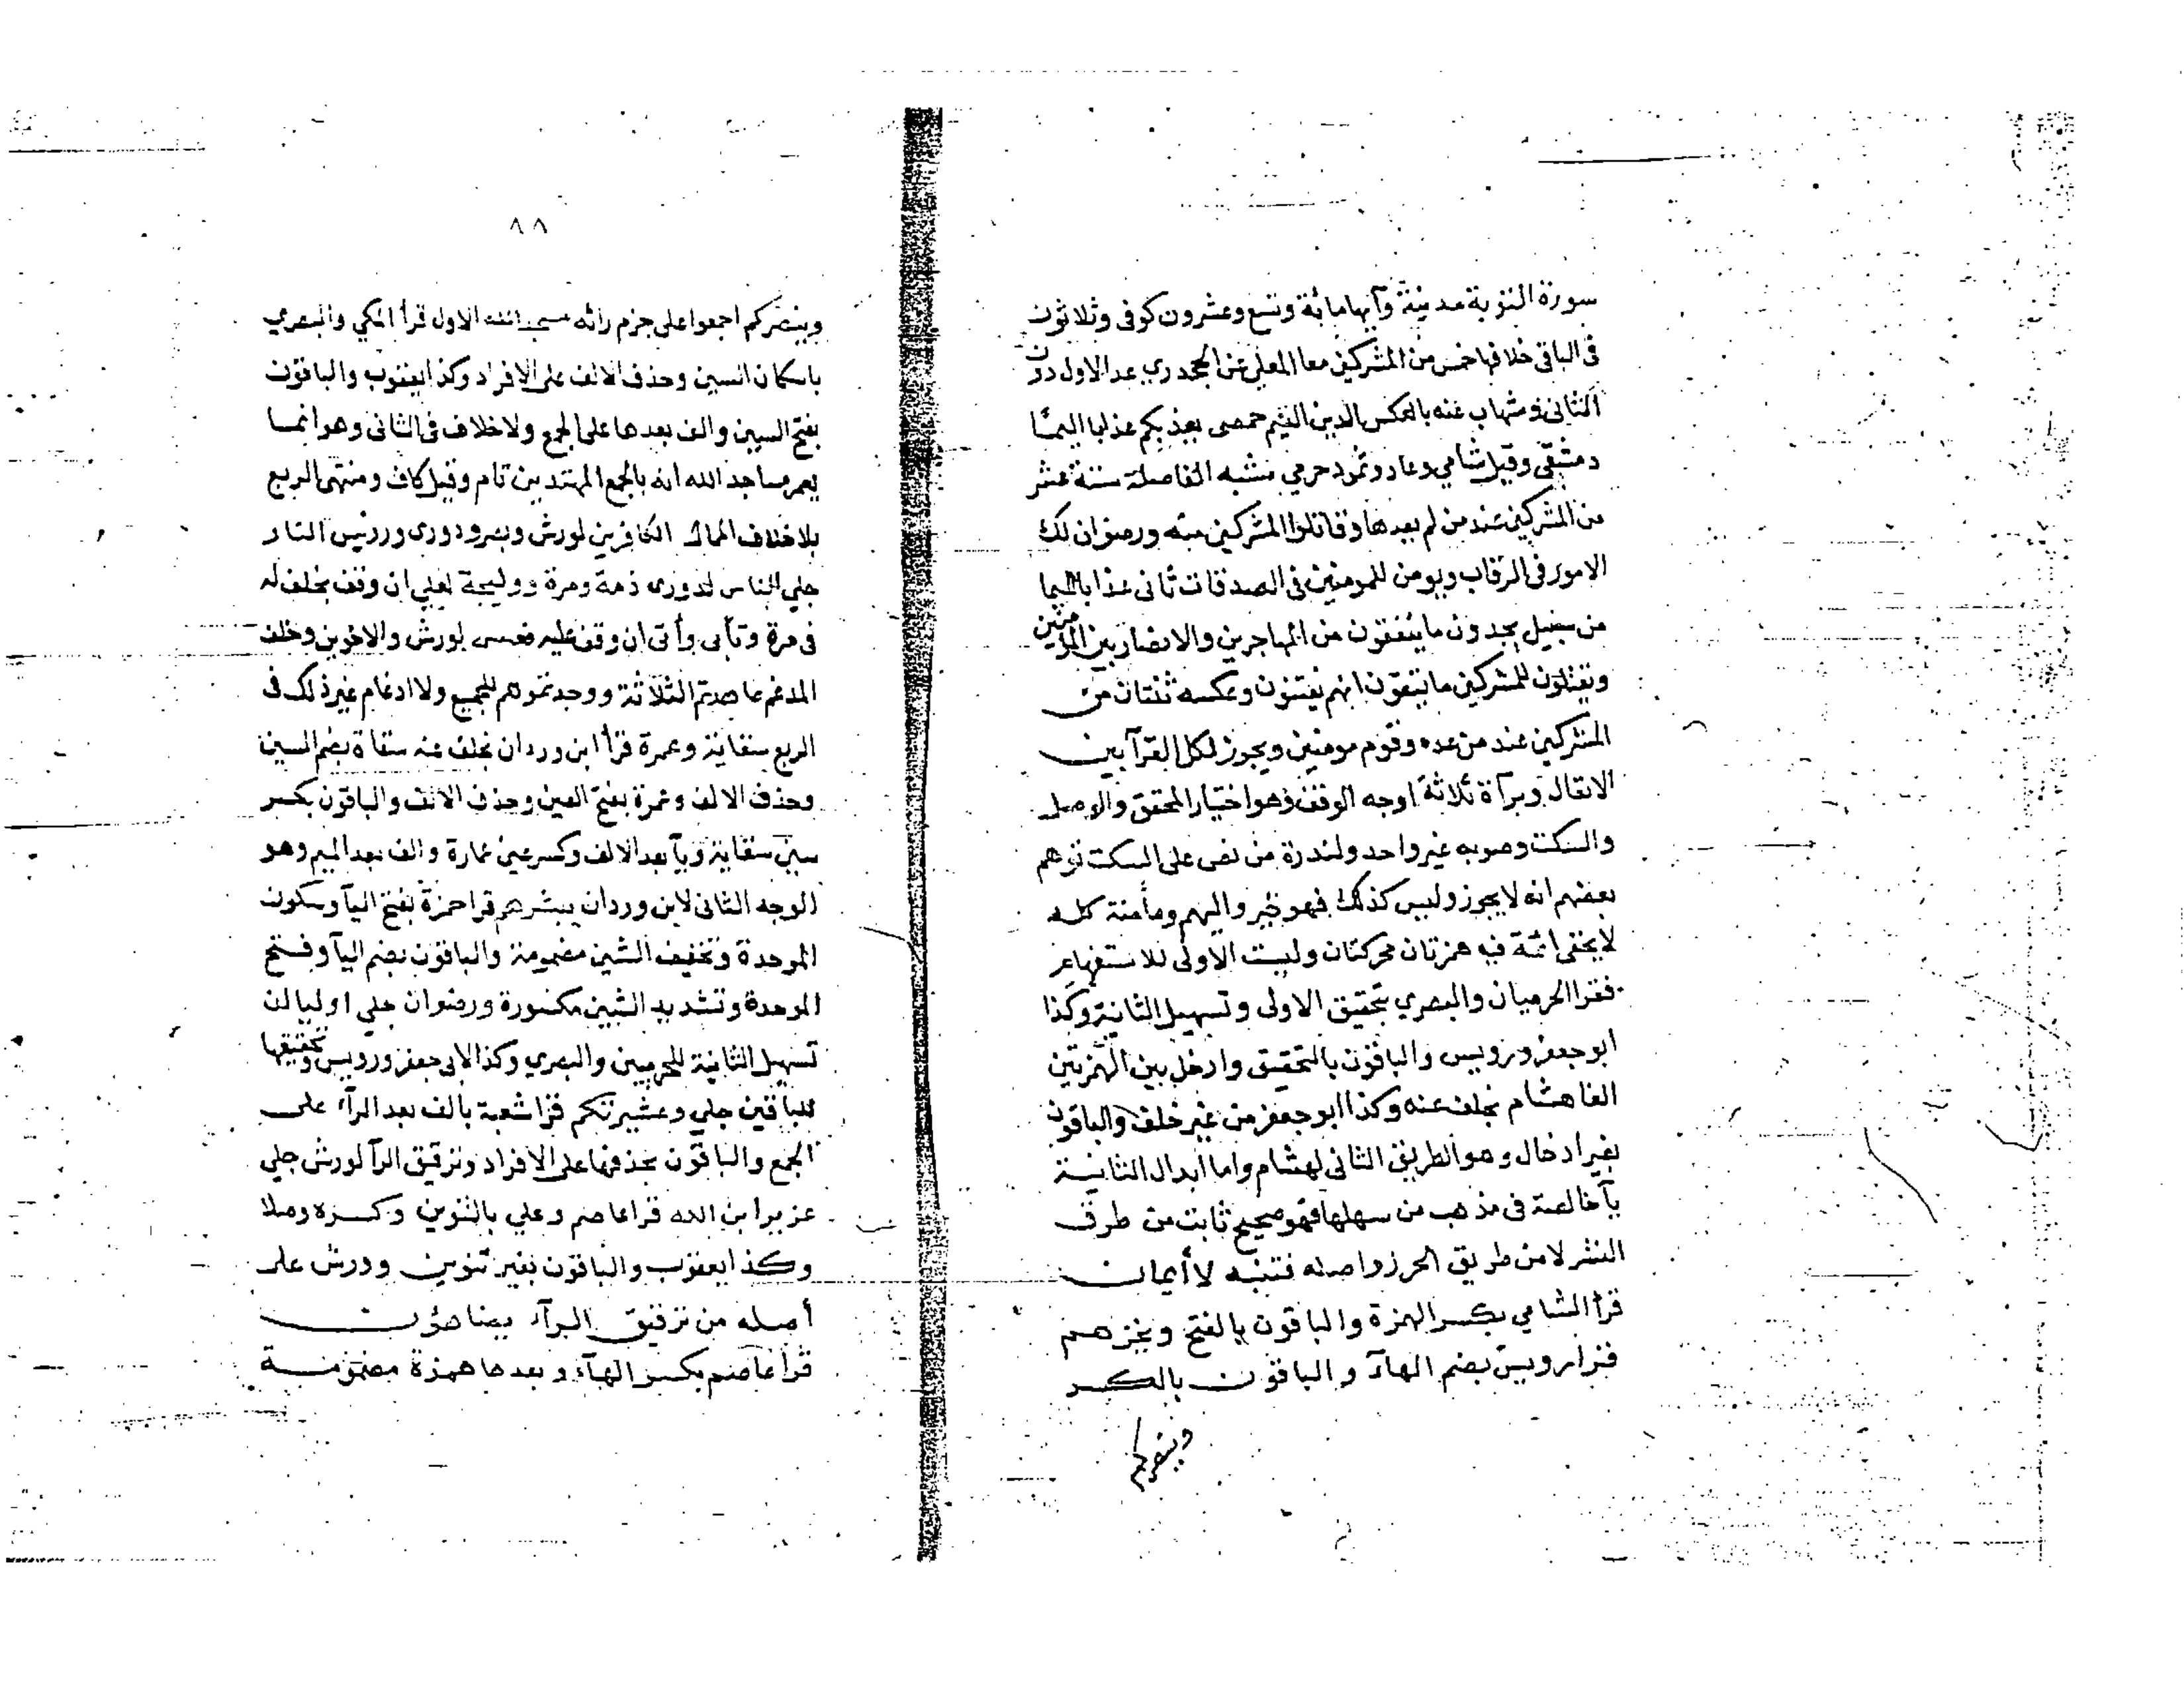 سورة التوبة مدنية وآيها مائة وتسع وعشرون كوفى وثلاثون
فى الباقى خلافها خمس من المشركين معا المعلى عن الجحدري عد الاول دون
الثانى وشهاب عنه بالعكس الدين القيم حمصى يعذبكم عذابا اليما
دمشقى وقيل شامي وعاد وثمود حرمي مشبه الفاصلة ستة عشر
من المشركين عند من لم يعدها وقاتلوا المشركين منه ورضوان لك
الامور فى الرقاب ويومن للمومنين فى الصدقات ثانى عذابا اليما
من سبيل يجدون ما ينفقون من المهاجرين والانصار بين المؤمنين
ويقتلون للمشركين ما يتقون انهم يفتنون وعكسه ثنتان من
المشركين عند من عده وقوم مومنين ويجوز لكل القرآ بين
الانفال وبرآة ثلاثة اوجه الوقف وهو اختيار المحقق والوصل
والسكت وصوبه غير واحد ولندرة من نص على السكت توهم
بعضهم انه لا يجوز وليس كذلك فهو خير واليهم ومأمنه كله
لا يخفى ائمة فيه همزتان محركتان وليست الاولى للاستفهام
فقرا الحرميان والبصري بتحقيق الاولى وتسهيل الثانية وكذا
ابو جعفر ورويس والباقون بالتحقيق وادخل بين الهمزتين
الفا هشام بخلف عنه وكذا ابو جعفر من غير خلف والباقون
بغير ادخال وهو الطريق الثانى لهشام واما ابدال الثانية
يآ خالصة فى مذهب من سهلها فهو صحيح ثابت من طرق
النشر لا من طريق الحرز واصله فتنبه لا أيمان
قرا الشامي بكسر الهمزة والباقون بالفتح ويخزهم
قرا رويس بضم الهآ والباقون بالكسر
وينصركم
٨٨
وينصركم اجمعوا على جزم رائه مسجد الله الاول قرأ المكي والبصري
باسكان السين وحذف الالف على الافراد وكذا يعقوب والباقون
بفتح السين والف بعدها على الجمع ولا خلاف فى الثانى وهو انما
يعمر مساجد الله انه بالجمع المهتدين تام وقيل كاف ومنتهى الربع
بلا خلاف الممال الكافرين لورش وبصر ودورى ورويس النار
جلي الناس لدورى ذمة ومرة ووليجة لعلي ان وقف بخلف له
فى مرة وتأبى وأتى ان وقف عليه فعسى لورش والاخوين وخلف
المدغم عاهدتم الثلاثة ووجدتموهم للجميع ولا ادغام غير ذلك فى
الربع سقاية وعمرة قرأ ابن وردان بخلف عنه سقاة بضم السين
وحذف الالف وعمرة بفتح العين وحذف الالف والباقون بكسر
سين سقاية ويآ بعد الالف وكسر عين عمارة والف بعد الميم وهو
الوجه الثانى لابن وردان يبشرهم قرا حمزة بفتح اليآ وسكون
الموحدة وتخفيف الشين مضمومة والباقون بضم اليآ وفتح
الموحدة وتشديد الشين مكسورة ورضوان جلي اوليا ان
تسهيل الثانية للحرميين والبصري وكذا لابى جعفر ورويس وتحقيقها
للباقين جلي وعشيرتكم قرا شعبة بالف بعد الرآء على
الجمع والباقون بحذفها على الافراد وترقيق الرآ لورش جلي
عزير ابن الله قرا عاصم وعلي بالتنوين وكسره وصلا
وكذا يعقوب والباقون بغير تنوين وورش على
أصله من ترقيق الرآء يضاهؤن
قرا عاصم بكسر الهآء وبعدها همزة مضمومة